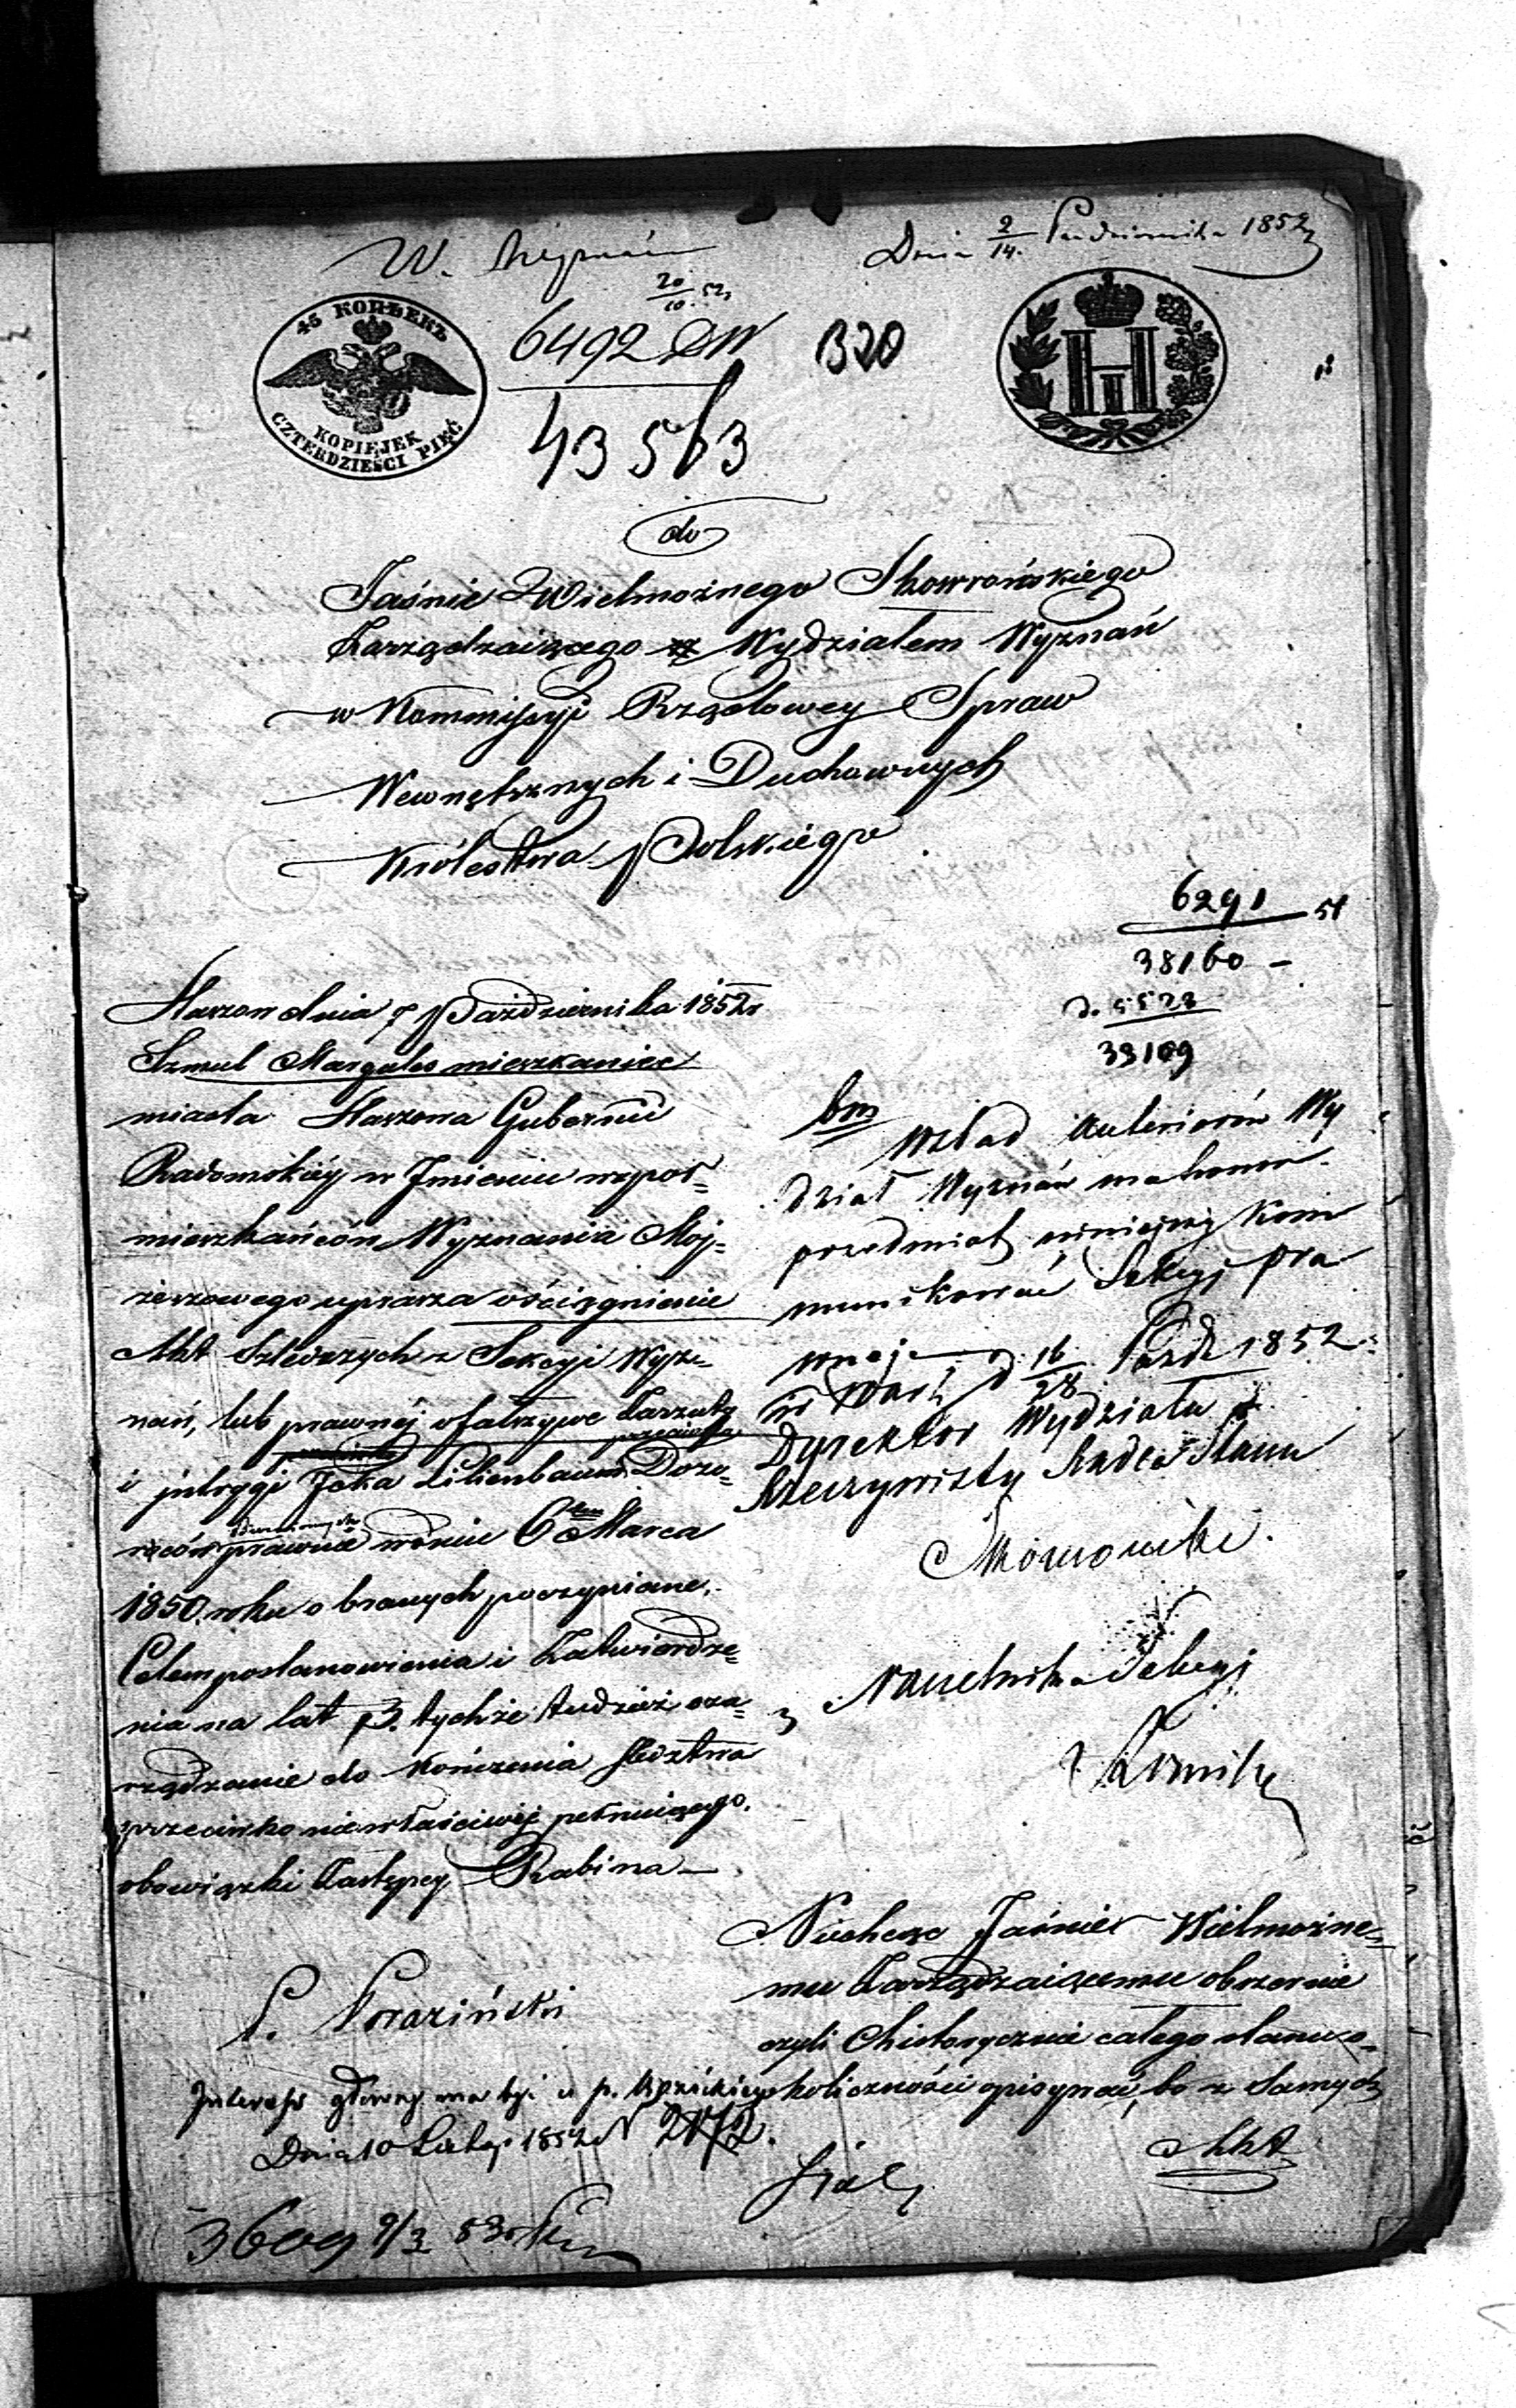 W. Wyznań
Dnia 2/14. Października 1852
20/10 52
45 КОПѢЕКЪ
KOPIEJEK
CZTERDZIEŚCI PIĘĆ
6492 DW
1320
43563
do
Jaśnie Wielmożnego Skowrońskiego
Zarządzaiącego Wydziałem Wyznań
w Kommissyi Rządowey Spraw
Wewnętrznych i Duchownych
Królestwa Polskiego
6291 51
38160 -
d. 5523
33109
Staszow dnia 7 Października 1852r
Szmul Margules mieszkaniec
miasta Staszowa Gubernii
Radomskiéy w Jmieniu wspoł=
mieszkańców Wyznania Moj=
żeszowego uprasza ościągnienie
Akt Szledczych z Sekcyi Wyz=
nań, lub prawnéj o fałszywe Zarzuty
przeciwko
i jntrygi Jcka Lilienbauma Dozo=
rców prawnie w dniu 6 Marca
1850. roku obranych poczynione.
Celem postanowienia i Zatwierdze=
nia na lat 3. tychże tudzież oza=
rządzenie do kończenia śledztwa
przeciwko niewłaściwéj pełniącego.
obowiązki Zastępcy Rabina —
bm
Wzład Wy
dział Wyznań ma honor
przedmiot niniejszy kom
munikować Sekcyi pra
wnej
w Warsz. d. 16/28 Paźdz 1852
Dyrektor Wydziału
Rzeczywisty Radca Stanu
Skowroński.
Naczelnik Sekcyi
Niechcąc Jaśnie Wielmożne=
mu Zarządzaiącemu obszernie
czyli Chistorycznie całego stanu o=
koliczności opisywać, bo z Samych
Akt
Interess główny ma być u p.
Dnia 10 Lutego 1852 N 2072.
3609 9/3 53